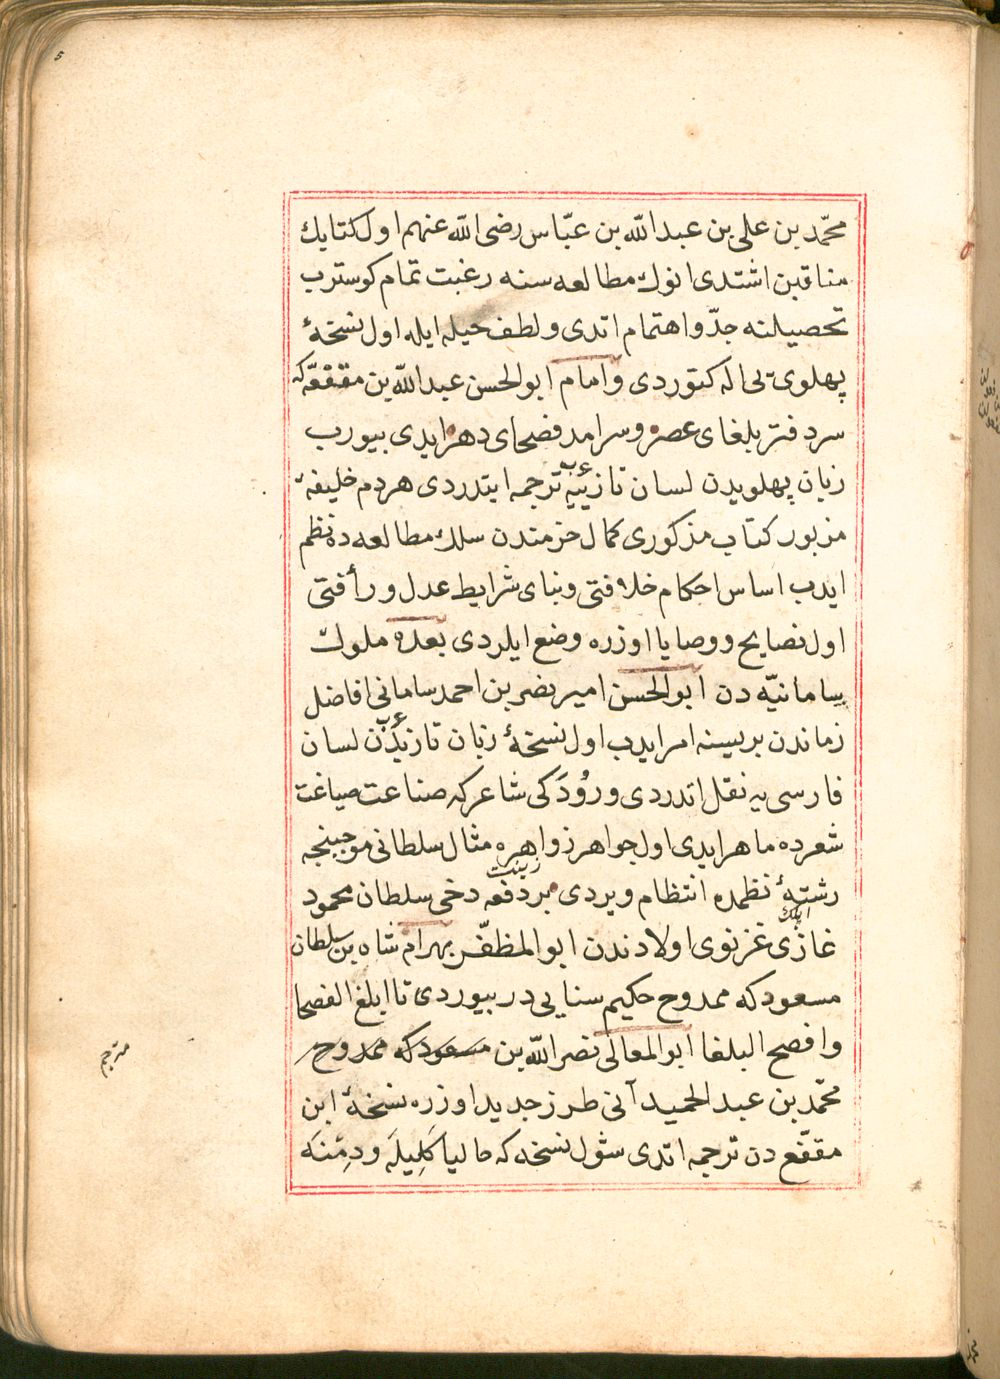 محمّد بن علی بن عبد الله بن عبّاس رضی الله عنهم اول کتابك
مناقبن اشتدی انوك مطالعه سنه رغبت تمام کوسترب
تحصیلنه جدّ و اهتمام اتدی و لطف حیله ایله اول نسخهٔ
پهلوی یی اله کتوردی و امام ابوالحسن عبد الله بن مقفّع که
سر دفتر بلغای عصر و سرامد فصحای دهر ایدی بیورب
زبان پهلویدن لسان تازییه ترجمه ایتدردی هر دم خلیفهٔ
مزبور کتاب مذکوری کمال حرمتدن سلك مطالعه ده نظم
ایدب اساس احکام خلافتی و بنای شرایط عدل و رأفتی
اول نصایح و وصایا اوزره وضع ایلردی بعده ملوك
سامانیّه دن ابوالحسن امیر نصر بن احمد سامانی افاضل
زماندن بریسنه امر ایدب اول نسخهٔ زبان تازیدن لسان
عربی
فارسی یه نقل اتدردی و رُودَکی شاعر که صناعت صیاغت
شعرده ماهر ایدی اول جواهر زواهره مثال سلطانی موجبنجه
زینت
رشتهٔ نظمده انتظام ویردی بر دفعه دخی سلطان محمود
غازی غزنوی اولادندن ابوالمظفّر بهرام شاه بن سلطان
مسعود که ممدوح حکیم سنایی در بیوردی تا ابلغ الفصحا
و افصح البلغا ابوالمعالی نصر الله بن مسعود که ممدوح
محمّد بن عبد الحمید آنی طرز جدید اوزره نسخهٔ ابن
مقفّع دن ترجمه اتدی شول نسخه که حالیا کَلِیلَه و دِمْنَه
مترجم
5